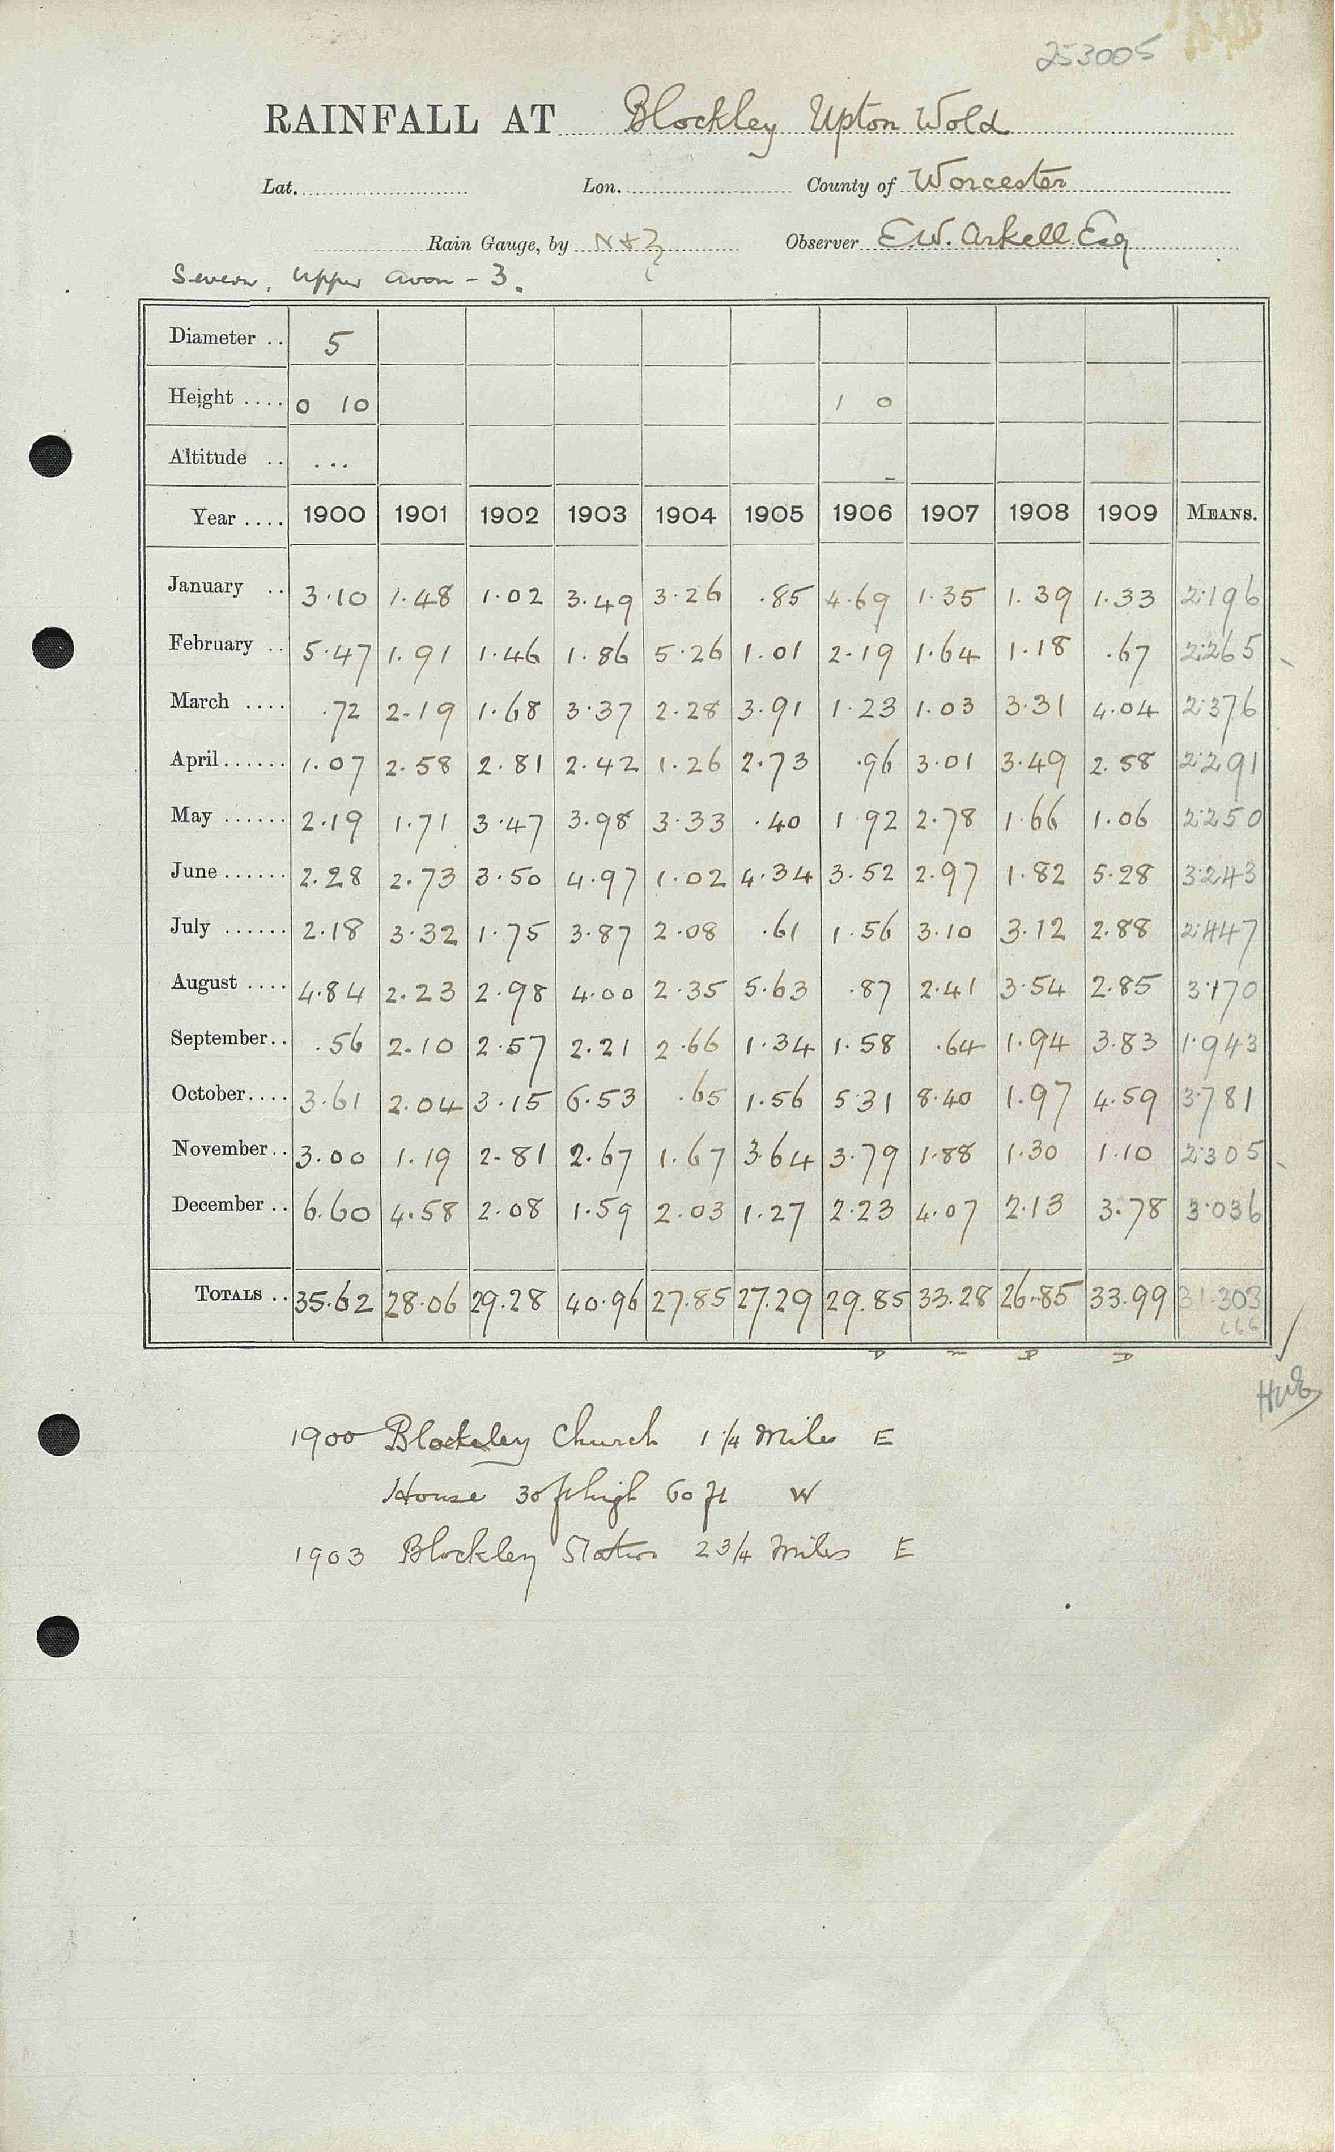 253005
RAINFALL AT Blockley Upton Wold
Lat. Lon. County of Worcester
Rain Gauge, by N & Z Observer E.W. Arkell Esq
Severn, Upper Avon - 3.
Diameter .. 5
Height .... 0 10 1 0
Altitude .. ...
Year .... 1900 1901 1902 1903 1904 1905 1906 1907 1908 1909 MEANS.
January .. 3.10 1.48 1.02 3.49 3.26 .85 4.69 1.35 1.39 1.33 2.196
February .. 5.47 1.91 1.46 1.86 5.26 1.01 2.19 1.64 1.18 .67 2.265
March .... .72 2.19 1.68 3.37 2.28 3.91 1.23 1.03 3.31 4.04 2.376
April ...... 1.07 2.58 2.81 2.42 1.26 2.73 .96 3.01 3.49 2.58 2.291
May ...... 2.19 1.71 3.47 3.98 3.33 .40 1.92 2.78 1.66 1.06 2.250
June ...... 2.28 2.73 3.50 4.97 1.02 4.34 3.52 2.97 1.82 5.28 3.243
July ...... 2.18 3.32 1.75 3.87 2.08 .61 1.56 3.10 3.12 2.88 2.447
August .... 4.84 2.23 2.98 4.00 2.35 5.63 .87 2.41 3.54 2.85 3.170
September .. .56 2.10 2.57 2.21 2.66 1.34 1.58 .64 1.94 3.83 1.943
October .... 3.61 2.04 3.15 6.53 .65 1.56 5.31 8.40 1.97 4.59 3.781
November .. 3.00 1.19 2.81 2.67 1.67 3.64 3.79 1.88 1.30 1.10 2.305
December .. 6.60 4.58 2.08 1.59 2.03 1.27 2.23 4.07 2.13 3.78 3.036
TOTALS .. 35.62 28.06 29.28 40.96 27.85 27.29 29.85 33.28 26.85 33.99 31.303
1900 Blockeley Church 1 1/4 Miles E
House 30 ft high 60 ft W
1903 Blockley Station 2 3/4 Miles E